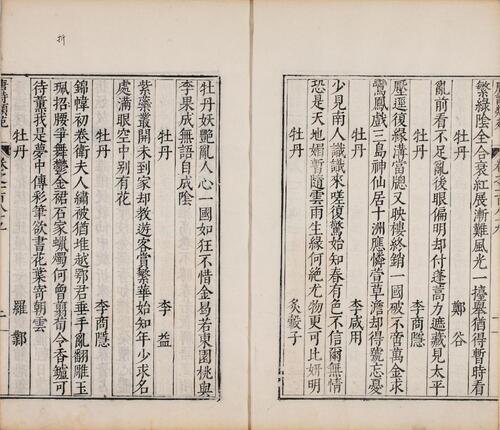 繁綠陰全合衰紅展漸難風光一擡舉猶得暫時看
牡丹 鄭谷
亂前看不足亂後眼偏明却付蓬蒿力遮藏見太平
牡丹 李商隱
壓逕復緣溝當牕又映樓終銷一國破不啻萬金求
鸞鳳戲三島神仙居十洲應憐萱草澹却得號忘憂
牡丹 李咸用
少見南人識識來嗟復驚始知春有色不信爾無情
恐是天地媚暫隨雲雨生緣何絕尤物更可比妍明
牡丹 炙轂子
牡丹妖艷亂人心一國如狂不惜金曷若東園桃與
李果成無語自成陰
牡丹 李益
紫蘂叢開未到家却教遊客賞繁華始知年少求名
處滿眼空中別有花
牡丹 李商隱
錦幃初卷衛夫人繡被猶堆越鄂君垂手亂翻雕玉
珮招腰爭舞鬱金裙石家蠟燭何曾剪荀令香鑪可
待薰我是夢中傳彩筆欲書花葉寄朝雲
牡丹 羅鄴
折